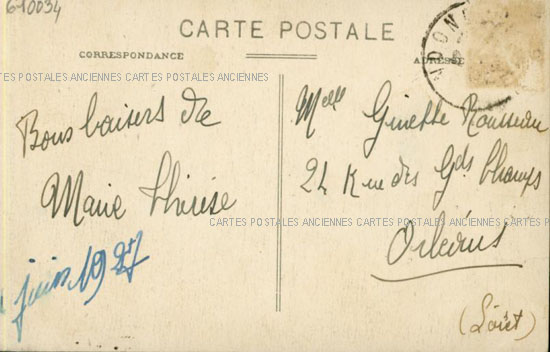 610034
CARTE POSTALE
CORRESPONDANCE
ADRESSE
CARTES POSTALES ANCIENNES CARTES POSTALES ANCIENNES CARTES POSTALES ANCIENNES CARTES POSTALES ANCIENNES
Bons baisers de
Marie Thérèse
juin 1927
Melle Ginette Rousseau
24 Rue des Gds Champs
Orléans
(Loiret)
CARTES POSTALES ANCIENNES CARTES POSTALES ANCIENNES CARTES POSTALES